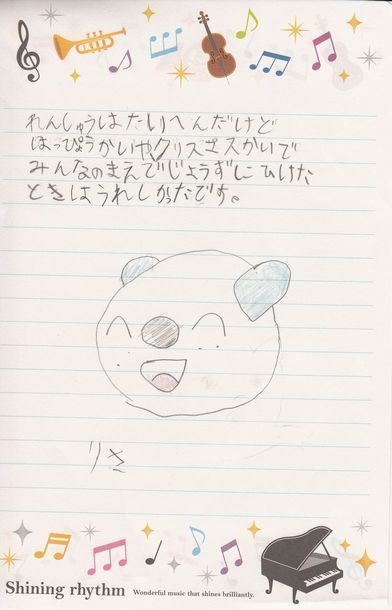 れんしゅうはたいへんだけど
はっぴょうかいやクリスマスかいで
みんなのまえでじょうずにひけた
ときはうれしかったです。
りさ
Shining rhythm Wonderful music that shines brilliantly.